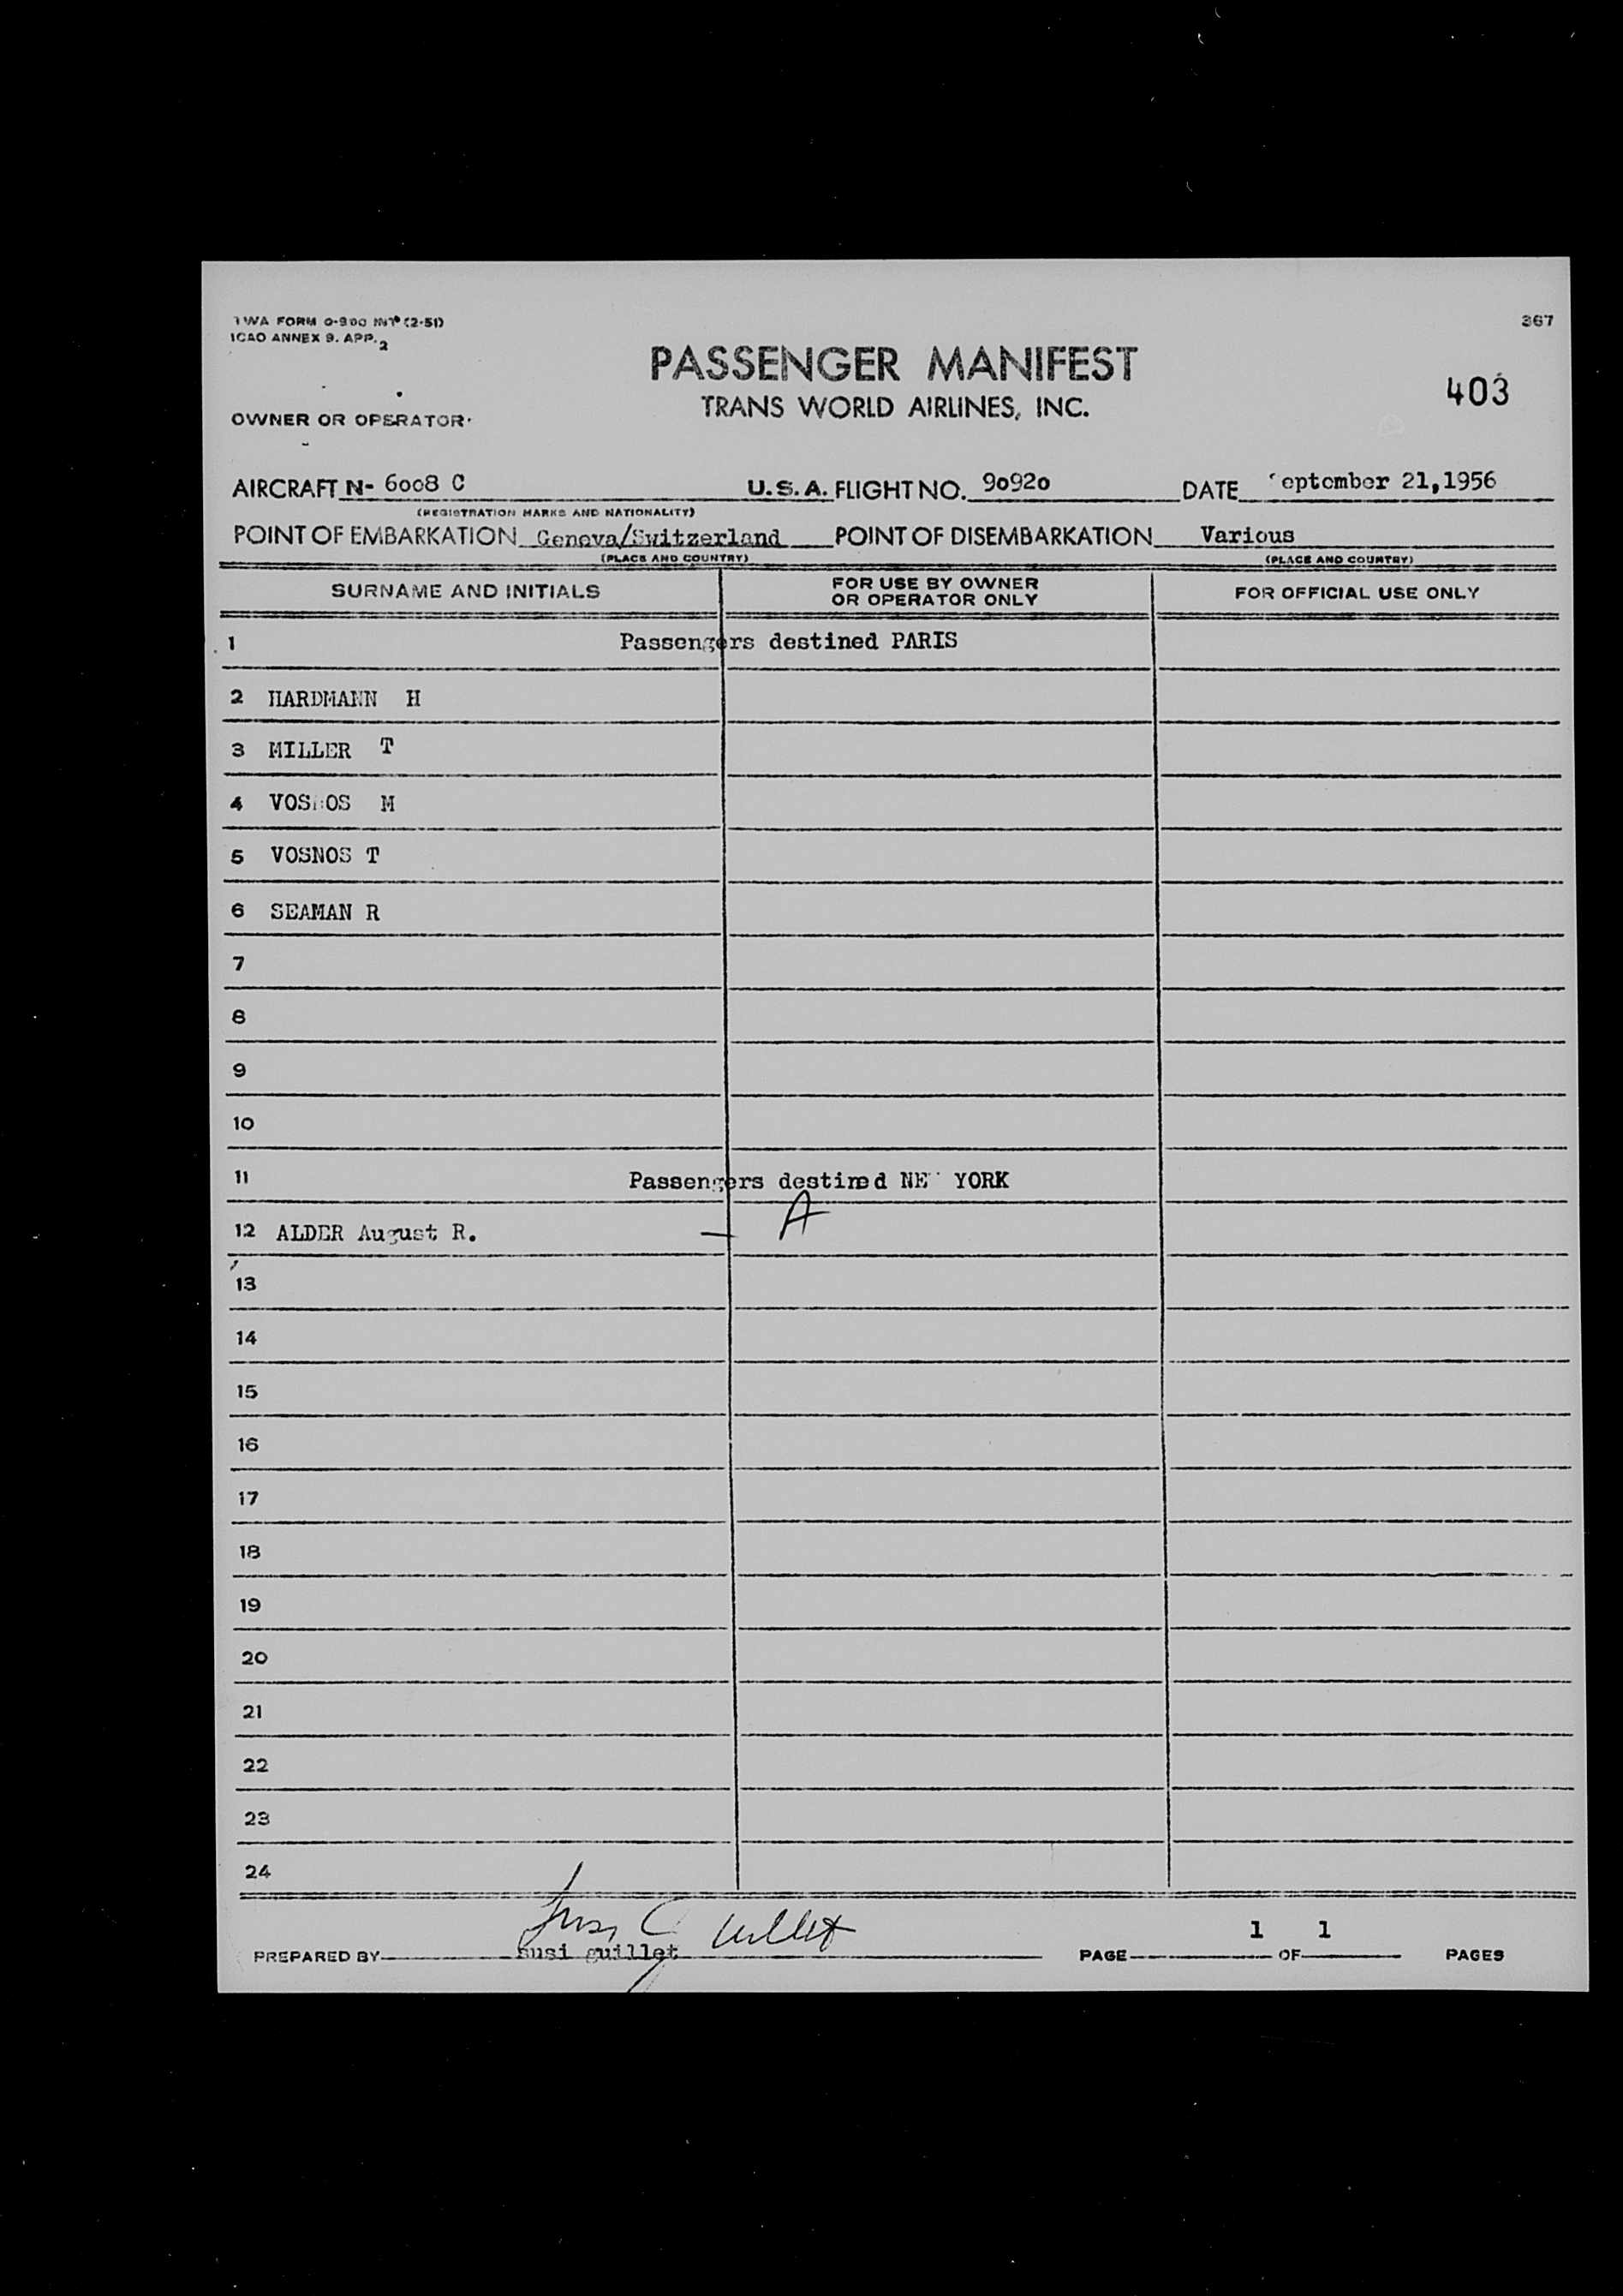 TWA FORM O-900 INT (2-51)
ICAO ANNEX 9. APP. 2
367
PASSENGER MANIFEST
TRANS WORLD AIRLINES, INC.
403
OWNER OR OPERATOR
AIRCRAFT N- 6008 C U.S.A. FLIGHT NO. 90920 DATE eptember 21,1956
(REGISTRATION MARKS AND NATIONALITY)
POINT OF EMBARKATION Geneva/Switzerland POINT OF DISEMBARKATION Various
(PLACE AND COUNTRY) (PLACE AND COUNTRY)
SURNAME AND INITIALS FOR USE BY OWNER OR OPERATOR ONLY FOR OFFICIAL USE ONLY
1 Passengers destined PARIS
2 HARDMANN H
3 MILLER T
4 VOSNOS M
5 VOSNOS T
6 SEAMAN R
7
8
9
10
11 Passengers destined NE YORK
12 ALDER August R. — A
13
14
15
16
17
18
19
20
21
22
23
24
Susi Guillet
PREPARED BY susi guillet PAGE 1 OF 1 PAGES